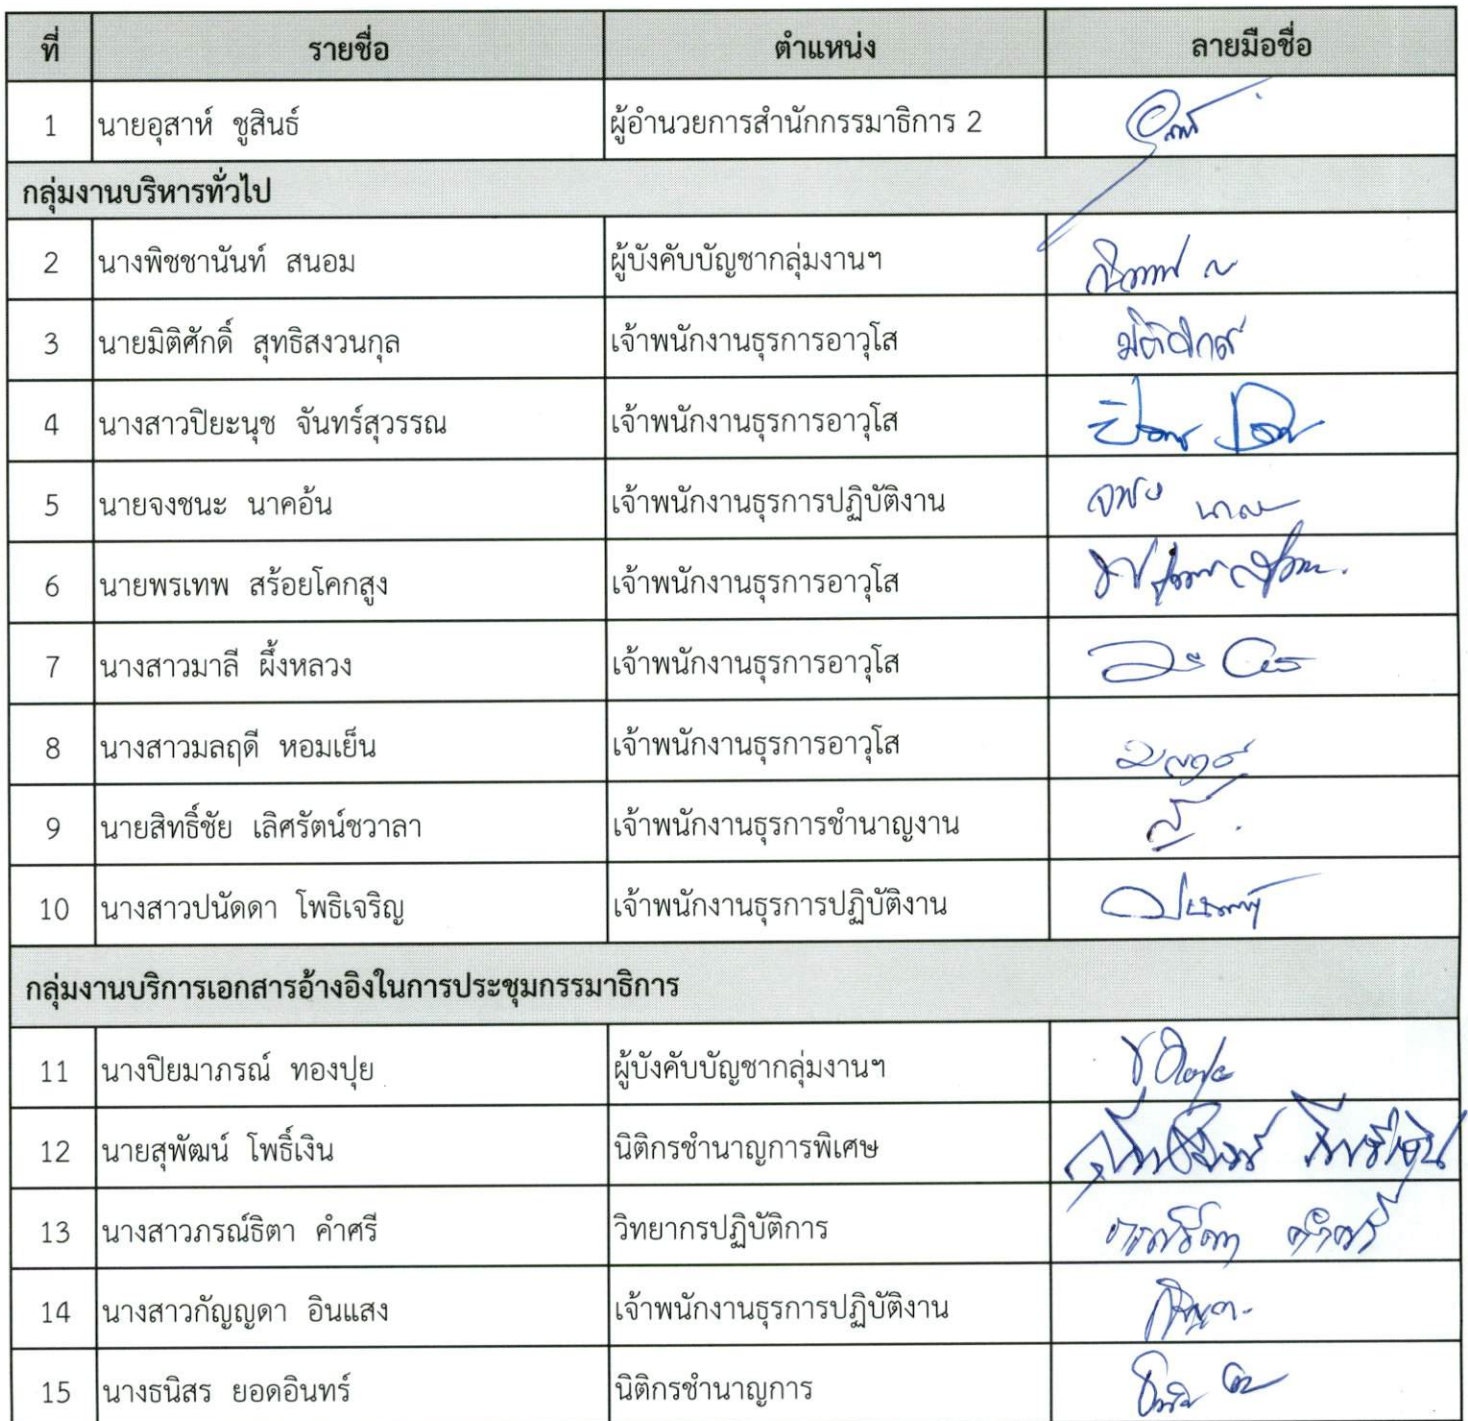 ที่ รายชื่อ ตำแหน่ง ลายมือชื่อ
1 นายอุสาห์ ชูสินธ์ ผู้อำนวยการสำนักกรรมาธิการ 2
กลุ่มงานบริหารทั่วไป
2 นางพิชชานันท์ สนอม ผู้บังคับบัญชากลุ่มงานฯ
3 นายมิติศักดิ์ สุทธิสงวนกุล เจ้าพนักงานธุรการอาวุโส
4 นางสาวปิยะนุช จันทร์สุวรรณ เจ้าพนักงานธุรการอาวุโส
5 นายจงชนะ นาคอ้น เจ้าพนักงานธุรการปฏิบัติงาน
6 นายพรเทพ สร้อยโคกสูง เจ้าพนักงานธุรการอาวุโส
7 นางสาวมาลี ผึ้งหลวง เจ้าพนักงานธุรการอาวุโส
8 นางสาวมลฤดี หอมเย็น เจ้าพนักงานธุรการอาวุโส
9 นายสิทธิ์ชัย เลิศรัตน์ชวาลา เจ้าพนักงานธุรการชำนาญงาน
10 นางสาวปนัดดา โพธิเจริญ เจ้าพนักงานธุรการปฏิบัติงาน
กลุ่มงานบริการเอกสารอ้างอิงในการประชุมกรรมาธิการ
11 นางปิยมาภรณ์ ทองปุย ผู้บังคับบัญชากลุ่มงานฯ
12 นายสุพัฒน์ โพธิ์เงิน นิติกรชำนาญการพิเศษ
13 นางสาวภรณ์ธิตา คำศรี วิทยากรปฏิบัติการ
14 นางสาวกัญญดา อินแสง เจ้าพนักงานธุรการปฏิบัติงาน
15 นางธนิสร ยอดอินทร์ นิติกรชำนาญการ